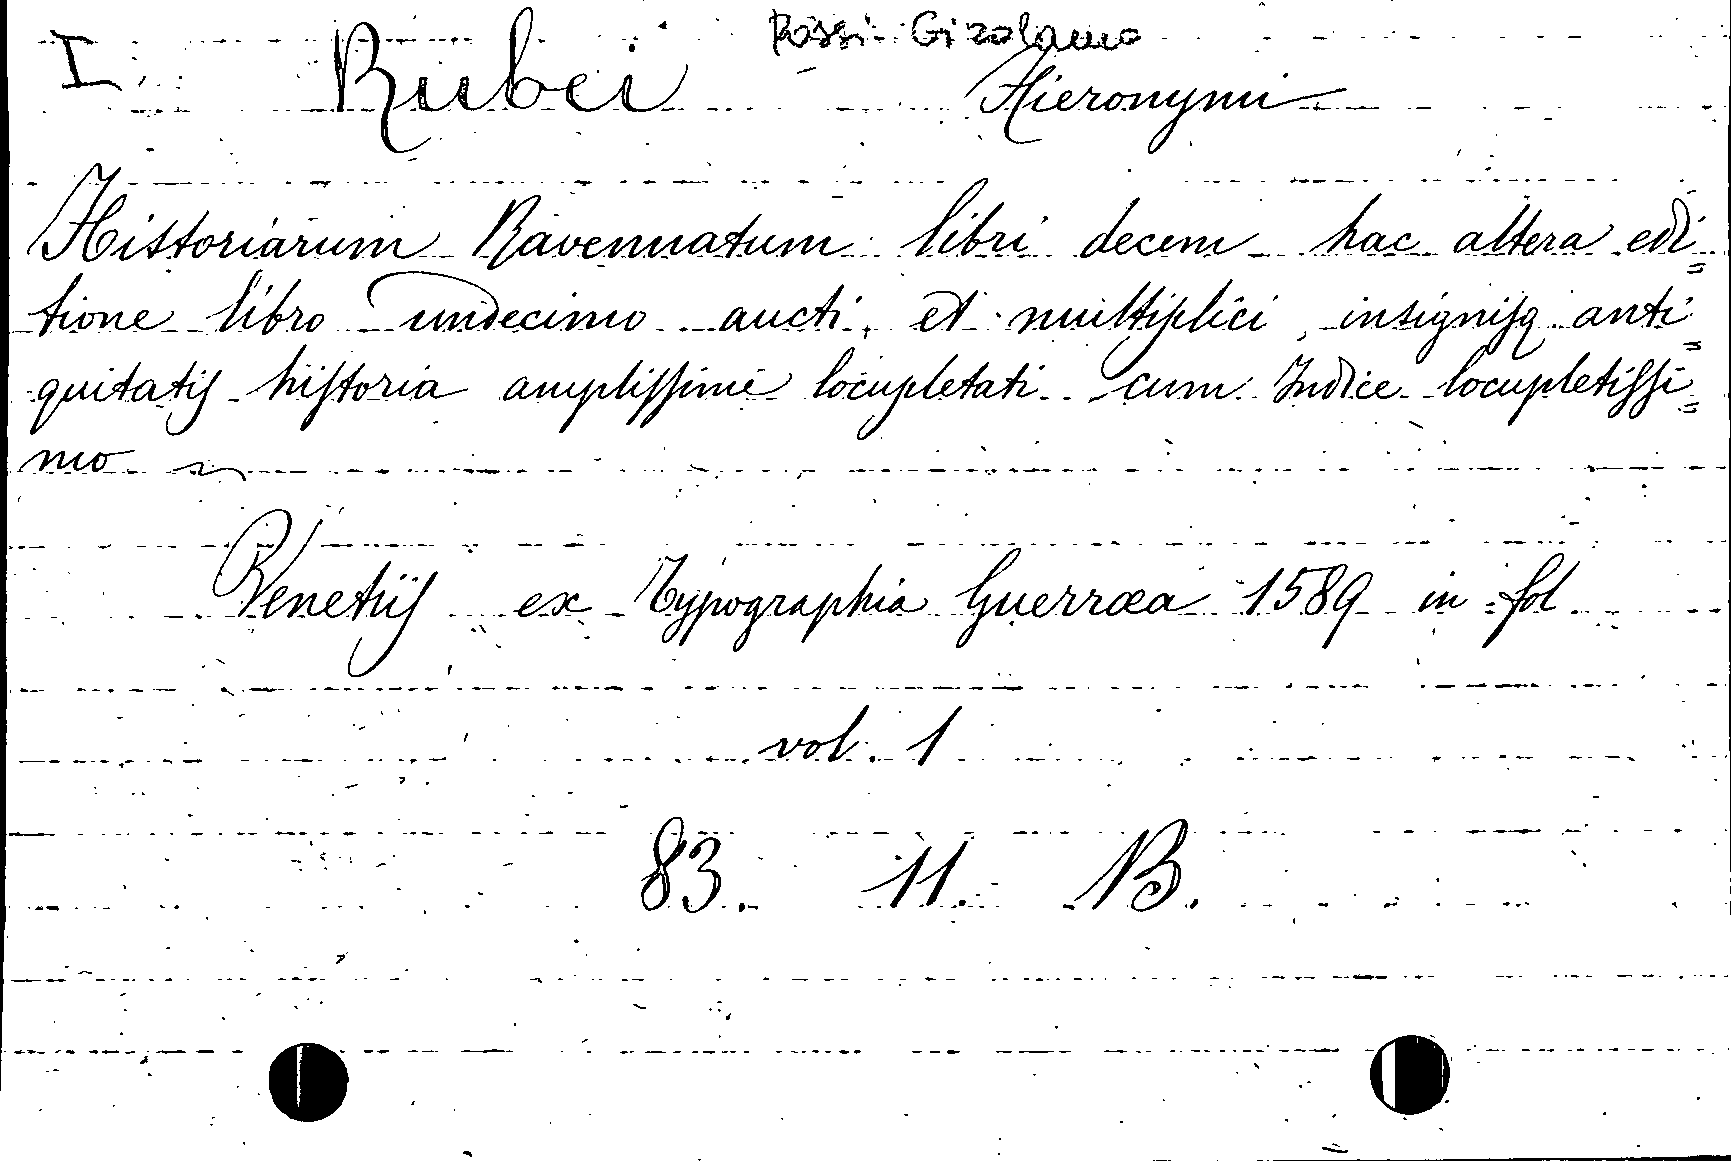 Rossi Girolamo
I Rubei Hieronymi
Historiarum Ravennatum libri decem hac altera edi=
tione libro undecimo aucti, et multiplici, insigniſq anti=
quitatiſ hiſtoria ampliſſime locupletati cum Indice locupletiſſi=
mo
Venetiiſ ex Typographia Guerræa 1589 in fol
vol. 1
83. 11. B.